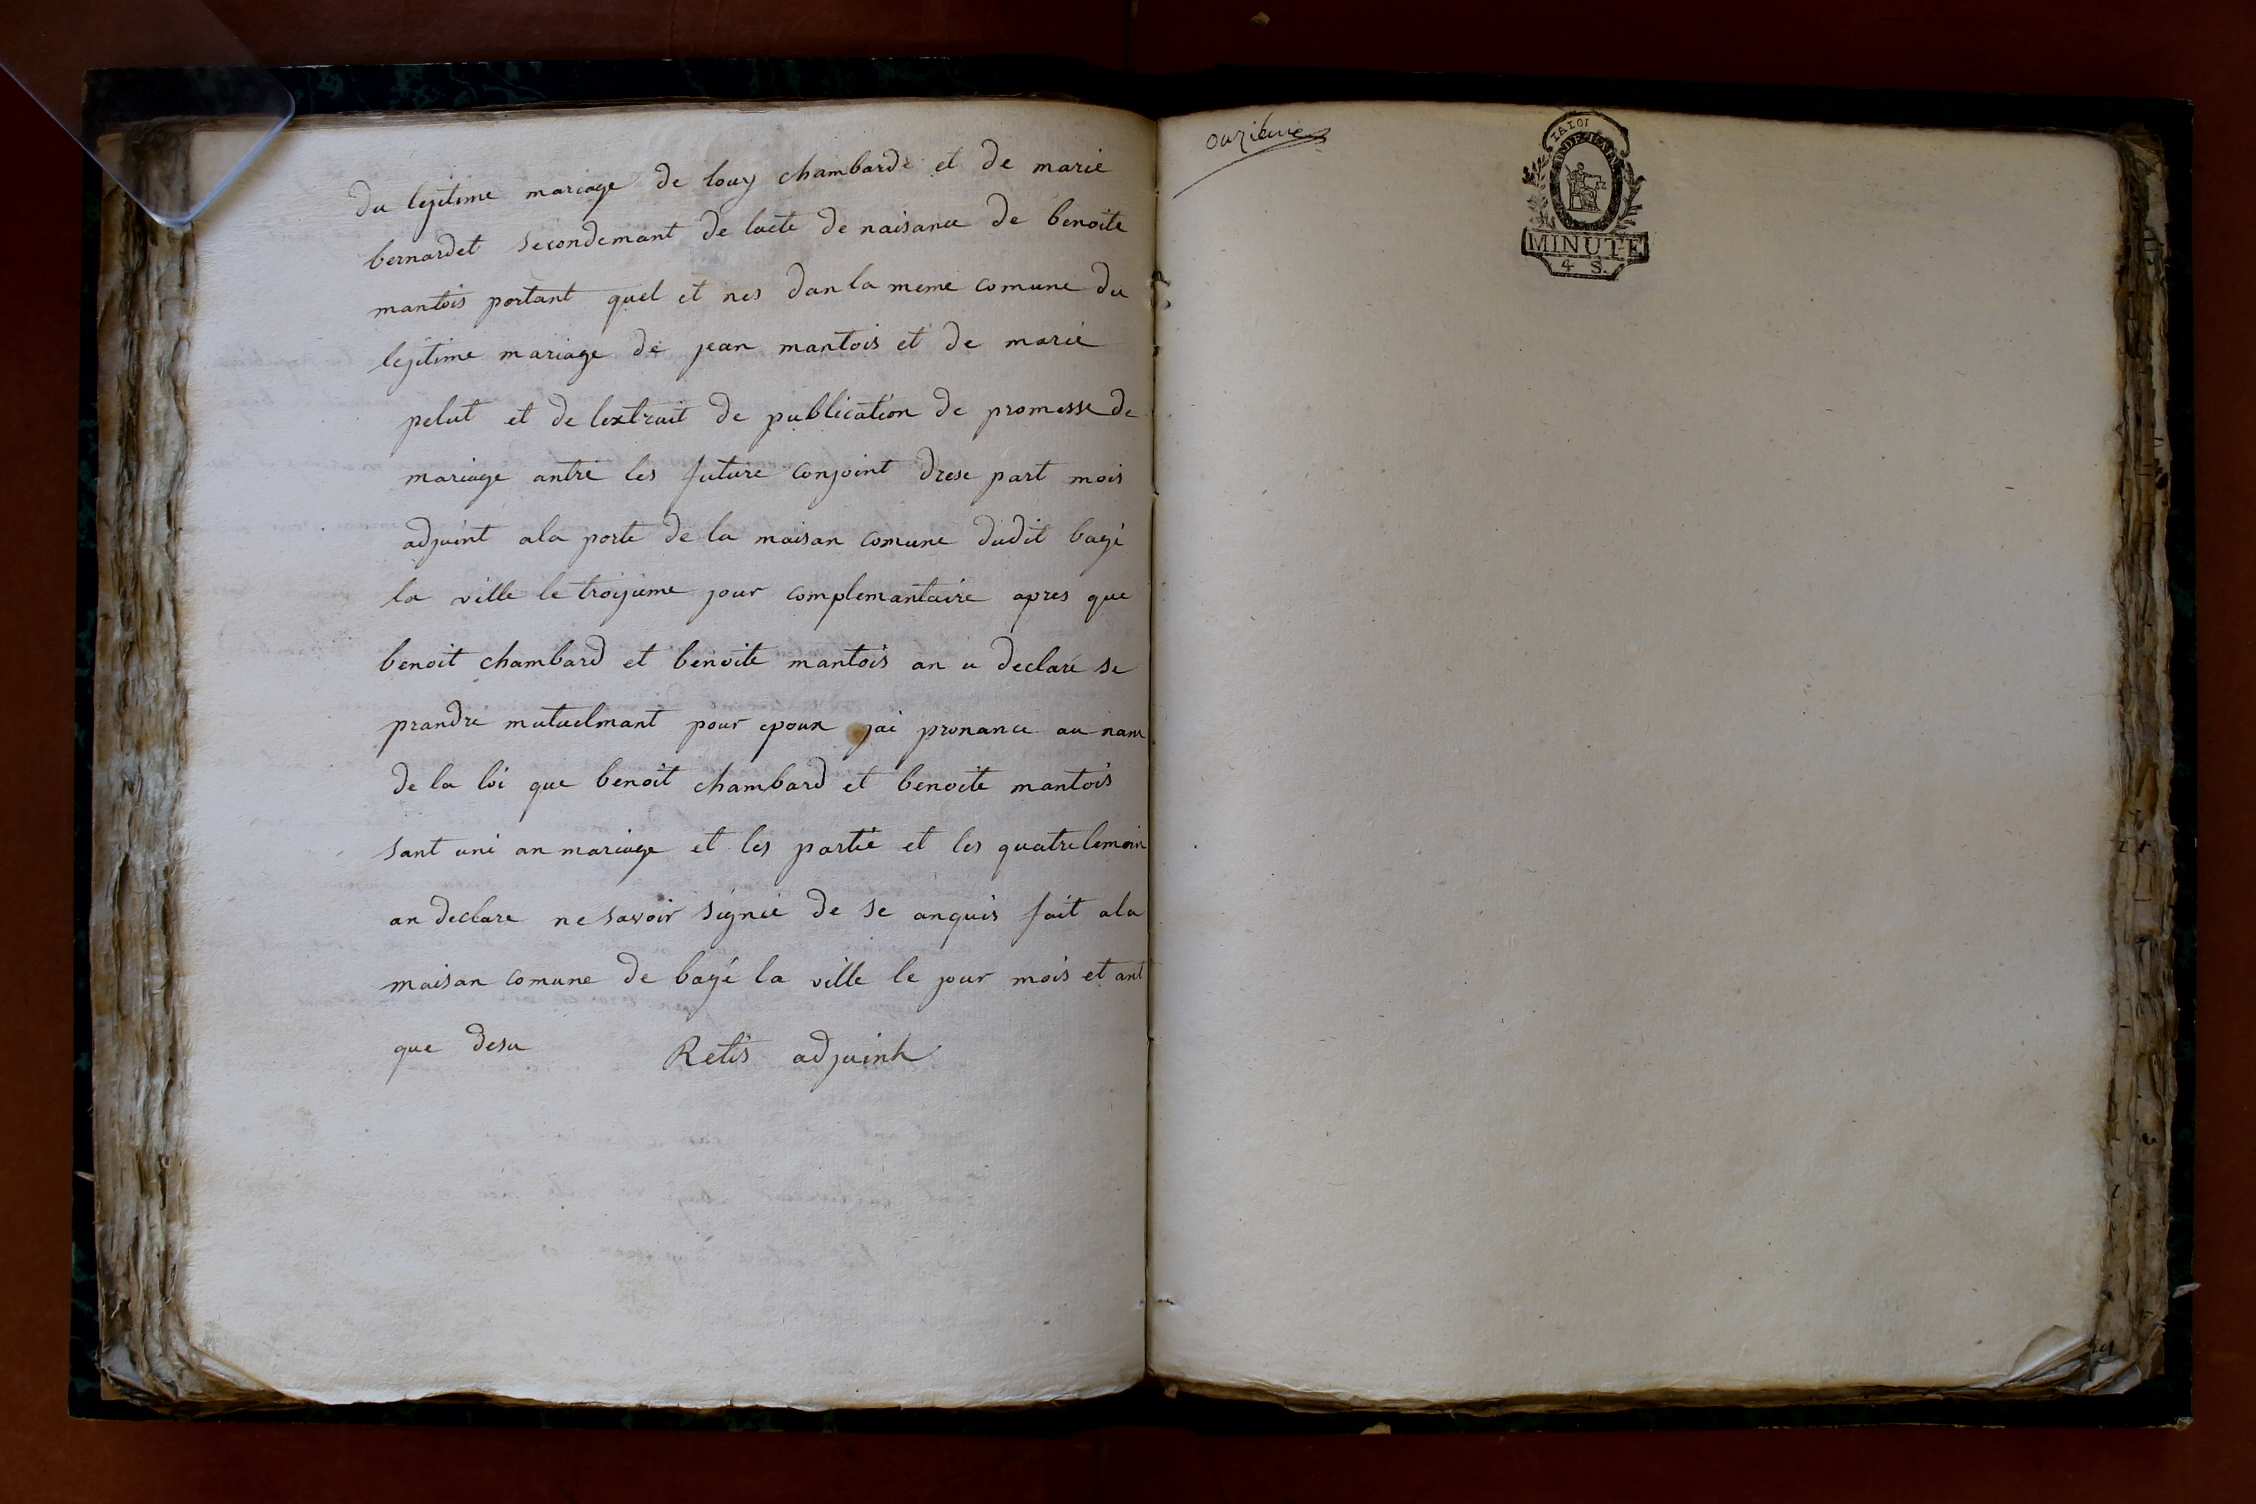 du lejitime mariage de louy chambarde et de marie
bernardet secondemant de lacte de naisance de benoite
mantois portant quel et nes dan la meme comune du
lejitime mariage de jean mantois et de marie
pelut et de lextrait de publication de promesse de
mariage antre les future conjoint drese part mois
adjuint ala porte de la maisan comune dudit bagé
la ville le troijieme jour complemantaire apres que
benoit chambard et benoite mantois an u declare se
prandre mutuelmant pour epoux jai pronance au nam
de la loi que benoit chambard et benoite mantois
sant uni an mariage et les partie et les quatre temoin
an declare ne savoir signie de se anquis fait ala
maisan comune de bagé la ville le jour mois et ant
que desu Retis adjuint
onzieme
LA LOI
MINUTE
4 S.